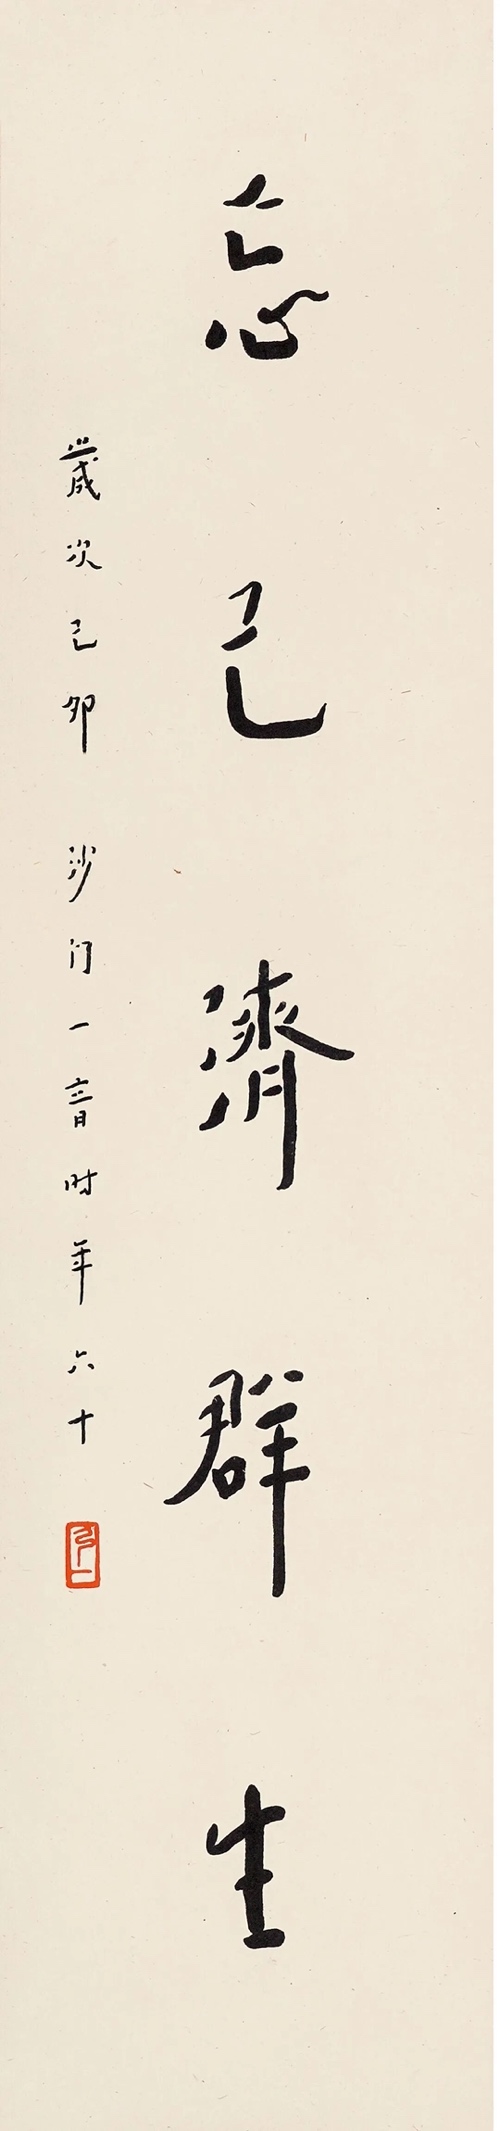 忘己濟群生
歲次己卯 沙门一音时年六十
弘一